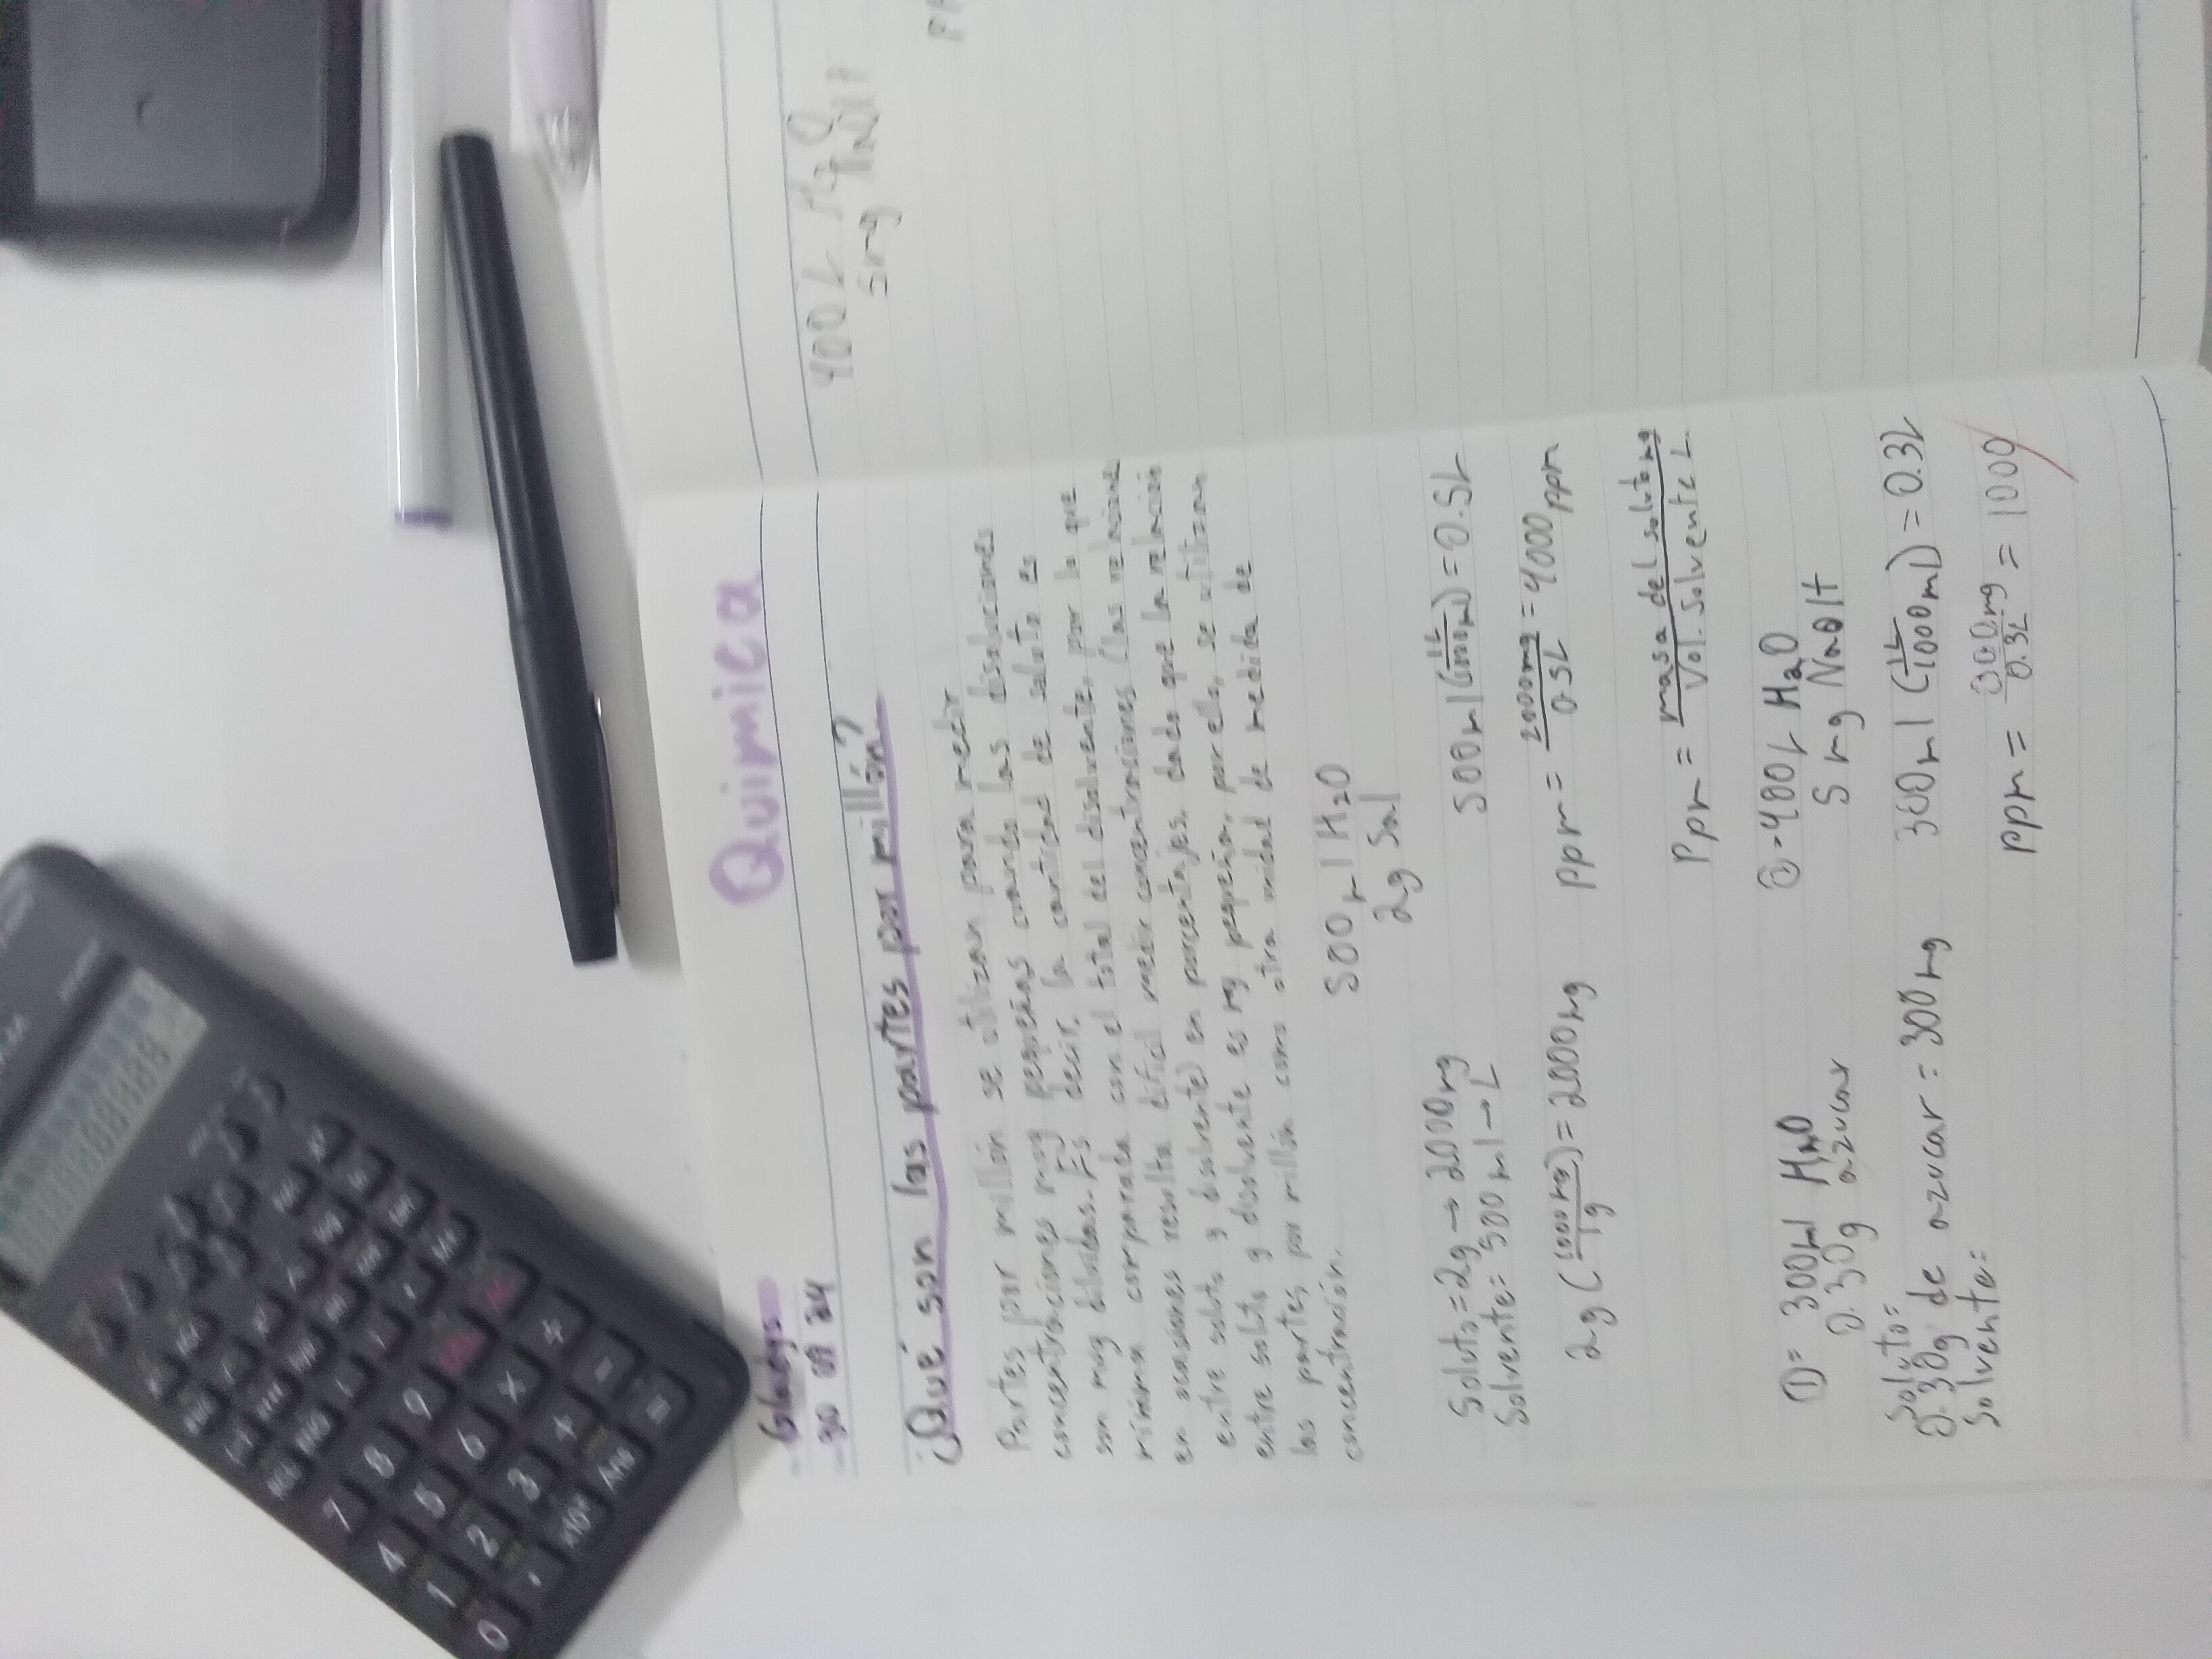 Química
Gladys
30 09 24
¿Qué son las partes por millón?
Partes por millón se utilizan para medir
concentraciones muy pequeñas cuando las disoluciones
son muy diluidas. Es decir, la cantidad de soluto es
mínima comparada con el total del disolvente, por lo que
en ocasiones resulta difícil medir concentraciones (las relaciones
entre soluto y disolvente) en porcentajes, dado que la relación
entre soluto y disolvente es my pequeña, por ello, se utilizan
las partes por millón como otra unidad de medida de
concentración.
500ml H2O
2g Sal
Soluto=2g→2000mg
Solvente: 500ml→L
500ml(1L/1000ml)=0.5L
2g(1000mg/1g)=2000mg
ppm = 2000mg/0.5L = 4000ppm
Ppm = masa del soluto mg/Vol. Solvente L.
①= 300ml H2O
0.30g azucar
②-400L H2O
5mg NaOH
Soluto=
0.30g de azucar = 300mg
Solvente:
300ml(1L/1000ml)=0.3L
ppm = 300mg/0.3L = 1000
400L H2O
5mg NaOH
7
8
9
4
5
6
×
÷
1
2
3
+
-
0
.
x10ˣ
Ans
=
DEL
AC